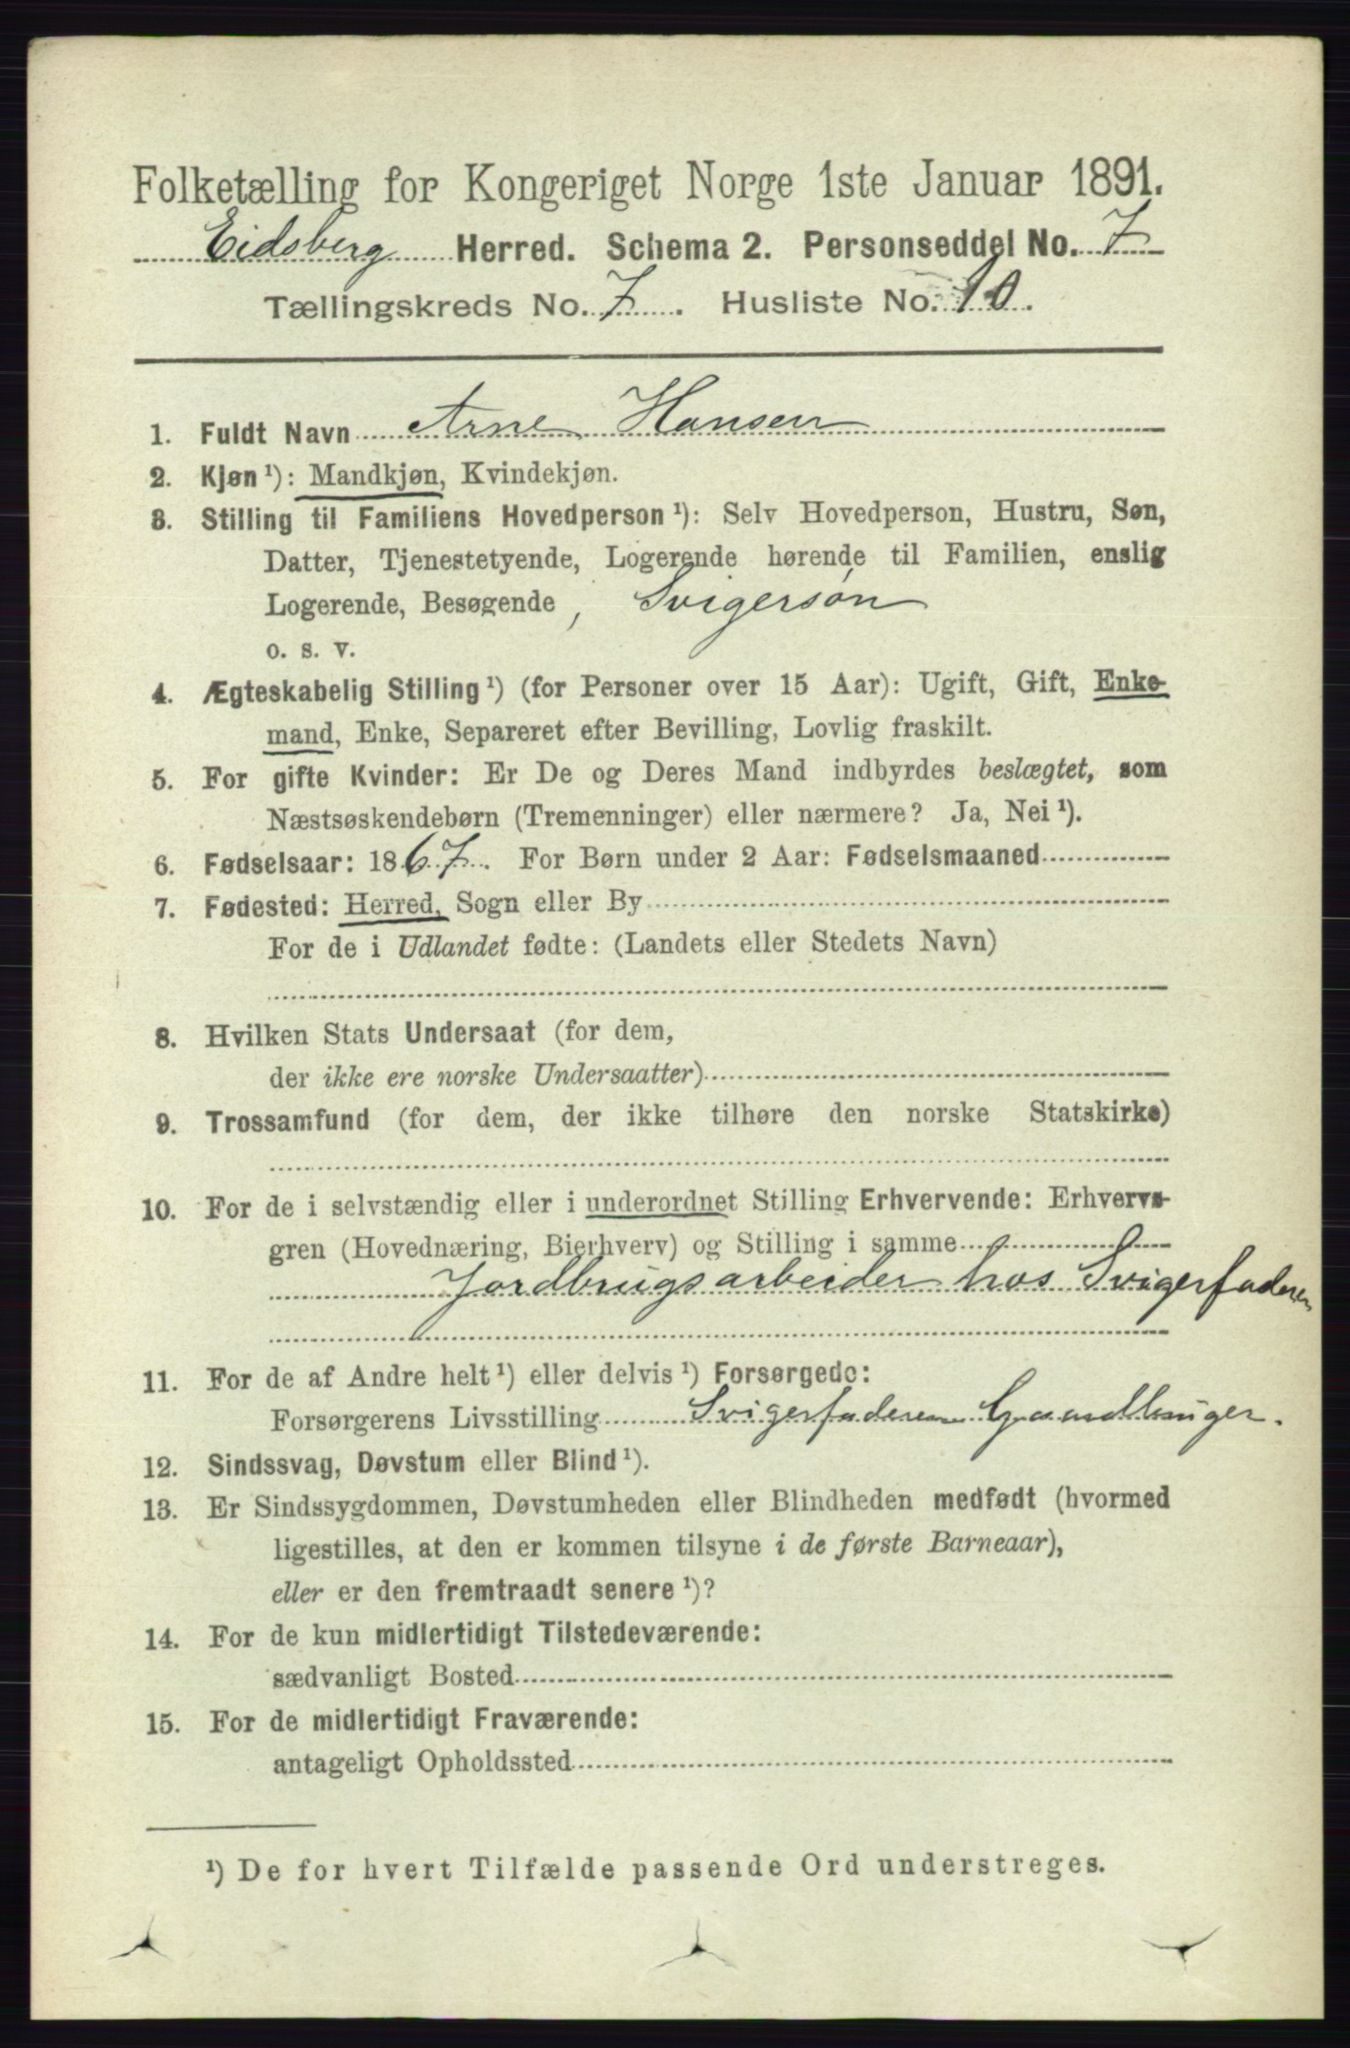 Folketælling for Kongeriget Norge 1ste Januar 1891.
Eidsberg Herred. Schema 2. Personseddel No. 7
Tællingskreds No. 7. Husliste No. 10.
1. Fuldt Navn Arne Hansen
2. Kjøn ¹): Mandkjøn, Kvindekjøn.
3. Stilling til Familiens Hovedperson ¹): Selv Hovedperson, Hustru, Søn,
Datter, Tjenestetyende, Logerende hørende til Familien, enslig
Logerende, Besøgende, Svigersøn
o. s. v.
4. Ægteskabelig Stilling ¹) (for Personer over 15 Aar): Ugift, Gift, Enke-
mand, Enke, Separeret efter Bevilling, Lovlig fraskilt.
5. For gifte Kvinder: Er De og Deres Mand indbyrdes beslægtet, som
Næstsøskendebørn (Tremenninger) eller nærmere? Ja, Nei ¹).
6. Fødselsaar: 1867. For Børn under 2 Aar: Fødselsmaaned
7. Fødested: Herred, Sogn eller By
For de i Udlandet fødte: (Landets eller Stedets Navn)
8. Hvilken Stats Undersaat (for dem,
der ikke ere norske Undersaatter)
9. Trossamfund (for dem, der ikke tilhøre den norske Statskirke)
10. For de i selvstændig eller i underordnet Stilling Erhvervende: Erhvervs-
gren (Hovednæring, Bierhverv) og Stilling i samme
Jordbrugsarbeider hos Svigerfaderen
11. For de af Andre helt ¹) eller delvis ¹) Forsørgede:
Forsørgerens Livsstilling Svigerfaderen Gaardbruger.
12. Sindssvag, Døvstum eller Blind ¹).
13. Er Sindssygdommen, Døvstumheden eller Blindheden medfødt (hvormed
ligestilles, at den er kommen tilsyne i de første Barneaar),
eller er den fremtraadt senere ¹)?
14. For de kun midlertidigt Tilstedeværende:
sædvanligt Bosted
15. For de midlertidigt Fraværende:
antageligt Opholdssted
¹) De for hvert Tilfælde passende Ord understreges.